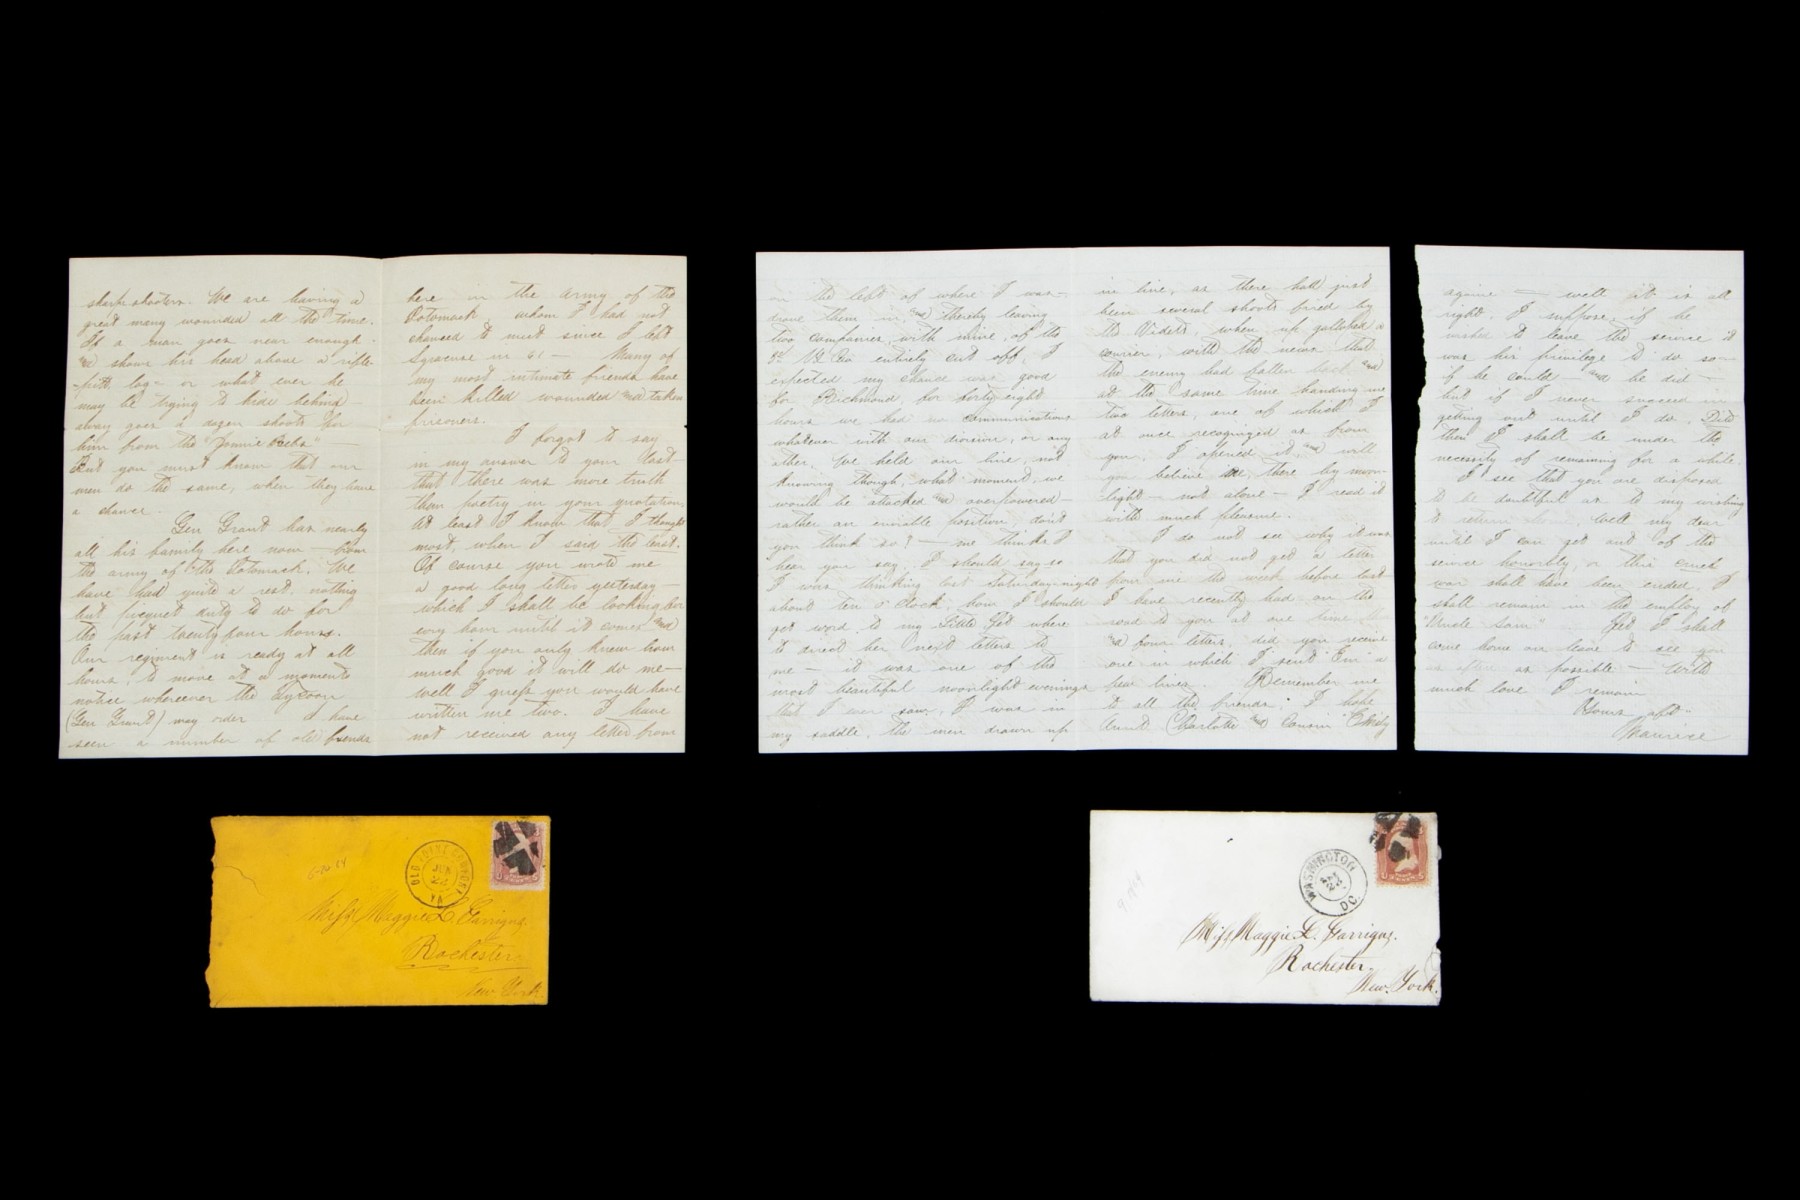 sharpe shooters. We are having a
great many wounded all the time.
If a man goes near enough
and shows his head above a rifle-
-pitt log - or what ever he
may be trying to hide behind -
away goes a dozen shoots for
him from the "Jonnie Rebs" -
But you must know that our
men do the same, when they have
a chance.
Gen Grant has nearly
all his family here now - from
the army of the Potomack. We
have had quite a rest, nothing
but picquet duty to do for
the past twenty four hours.
Our regiment is ready at all
hours, to move at a moments
notice wherever the
(Gen Grant) may order I have
seen a number of old friends
here in the army of the
Potomack, whom I had not
chanced to meet since I left
Syracuse in 61 - Many of
my most intimate friends have
been killed wounded and taken
prisoners.
I forgot to say
in my answer to your last -
that there was more truth
than poetry in your quotation,
At least I know that I thought
most, when I said the least.
Of course you wrote me
a good long letter yesterday -
which I shall be looking for
every hour until it comes and
then if you only knew how
much good it will do me -
well I guess you would have
written me two. I have
not received any letter from
on the left of where I was -
drove them in, and thereby leaving
two companies, with mine, of the
3d N.Y. Cav entirely cut off, I
expected my chance was good
for Richmond, for forty-eight
hours we had no communications
whatever with our division, or any
other. We held our line, not
knowing though, what moment, we
would be attacked and overpowered -
rather an enviable position, don't
you think so? - me thinks I
hear you say. I should say so
I was thinking last Saturday-night
about ten o'clock, how I should
get word to my little Pet where
to direct her next letters to
me - it was one of the
most beautiful moonlight evenings
that I ever saw, I was in
my saddle, the men drawn up
in line, as there had just
been several shoots fired by
the Videtts, when up galloped a
courier, with the news that
the enemy had fallen back and
at the same time handing me
two letters, one of which I
at once recognized as from
you. I opened it, and will
you believe me, there by moon-
-light - not alone - I read it
with much pleasure.
I do not see why it was
that you did not get a letter
from me the week before last
I have recently had on the
road to you at one time
four letters, did you receive
one in which I sent Em a
few lines. Remember me
to all the friends; I hope
Aunt Charlotte and Cousin
againe - well it is all
right. I suppose, if he
wished to leave the service it
was his privilege to do so -
if he could - and he did -
but if I never succeed in
getting out until I do. Did
then I shall be under the
necessity of remaining for a while.
I see that you are disposed
to be doubtful as to my wishing
to return home. Well my dear
until I can get out of the
service honorbly, or this cruel
war shall have been ended, I
shall remain in the employ of
"Uncle Sam" Yet I shall
come home on leave to see you
as often as possible - With
much love I remain
Yours aft"
Maurice
OLD POINT COMFORT
JUN
22
VA
Miss Maggie L. Garrigus.
Rochester
New York.
WASHINGTON
23
D.C.
Miss Maggie L. Garrigus.
Rochester.
New. York.